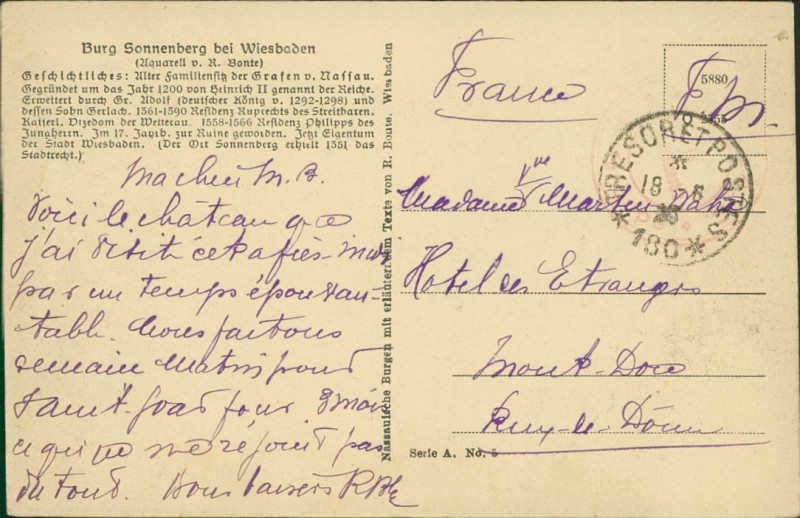 Burg Sonnenberg bei Wiesbaden
(Aquarell v. R. Bonte)
Geschichtliches: Alter Familiensitz der Grafen v. Nassau.
Gegründet um das Jahr 1200 von Heinrich II genannt der Reiche.
Erweitert durch Gr. Adolf (deutscher König v. 1292-1298) und
dessen Sohn Gerlach. 1361-1390 Residenz Ruprechts des Streitbaren.
Kaiserl. Vizedom der Wetterau. 1558-1566 Residenz Philipps des
Jungherrn. Im 17. Jahrh. zur Ruine geworden. Jetzt Eigentum
der Stadt Wiesbaden. (Der Ort Sonnenberg erhielt 1351 das
Stadtrecht.)
Voici le château que
j'ai visité cet après-midi
par un temps épouvan-
table. Nous partons
demain matin pour
pas
du tout. Bons baisers
Nassauische Burgen mit erläuterndem Texte von R. Bonte. Wiesbaden
France
F M.
5880
TRESOR ET POSTES
18
* 180 *
Madame Vve Martin
Hotel des Etrangers
Mont-Dore
Puy-de-Dôme
Serie A. No. 5